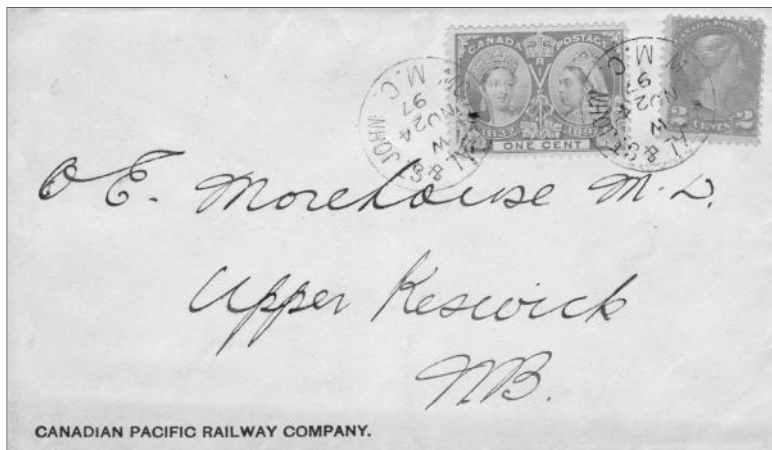 CANADA POSTAGE
1837 1897
ONE CENT
2 CENTS
M.C.
NO 24
97
ST JOHN
O E. Morehouse M.D.
Upper Keswick
NB.
CANADIAN PACIFIC RAILWAY COMPANY.